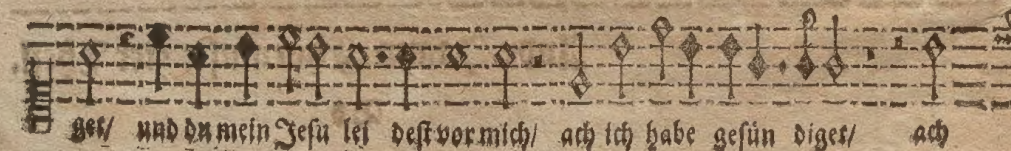 get/ und du mein Jesu lei dest vor mich/ ach ich habe gesün diget/ ach